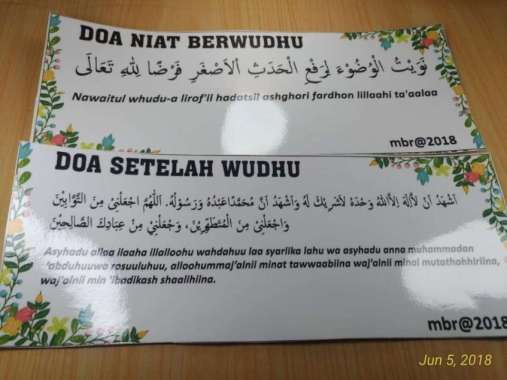 DOA NIAT BERWUDHU
نَوَيْتُ الْوُضُوْءَ لِرَفْعِ الْحَدَثِ اْلاَصْغَرِ فَرْضًا لِلّٰهِ تَعَالَى
Nawaitul whudu-a lirof'ii hadatsii ashghori fardhon lillaahi ta'aalaa
mbr@2018
DOA SETELAH WUDHU
اَشْهَدُ اَنْ لَااِلٰهَ اِلَّااللّٰهُ وَحْدَهُ لَاشَرِيْكَ لَهُ وَاَشْهَدُ اَنَّ مُحَمَّدًاعَبْدُهُ وَرَسُوْلُهُ. اَللّٰهُمَّ اجْعَلْنِىْ مِنَ التَّوَّابِيْنَ
وَاجْعَلْنِىْ مِنَ الْمُتَطَهِّرِيْنَ، وَجْعَلْنِيْ مِنْ عِبَادِكَ الصَّالِحِيْنَ
Asyhadu allaa ilaaha illalloohu wahdahuu laa syarlika lahu wa asyhadu anna muhammadan
'abduhuuwa rosuuluhuu, alloohummaj'alnii minat tawwaabiina waj'alnii minal mutathohhiriina,
waj'alnii min 'ibadikash shaalihiina.
mbr@2018
Jun 5, 2018